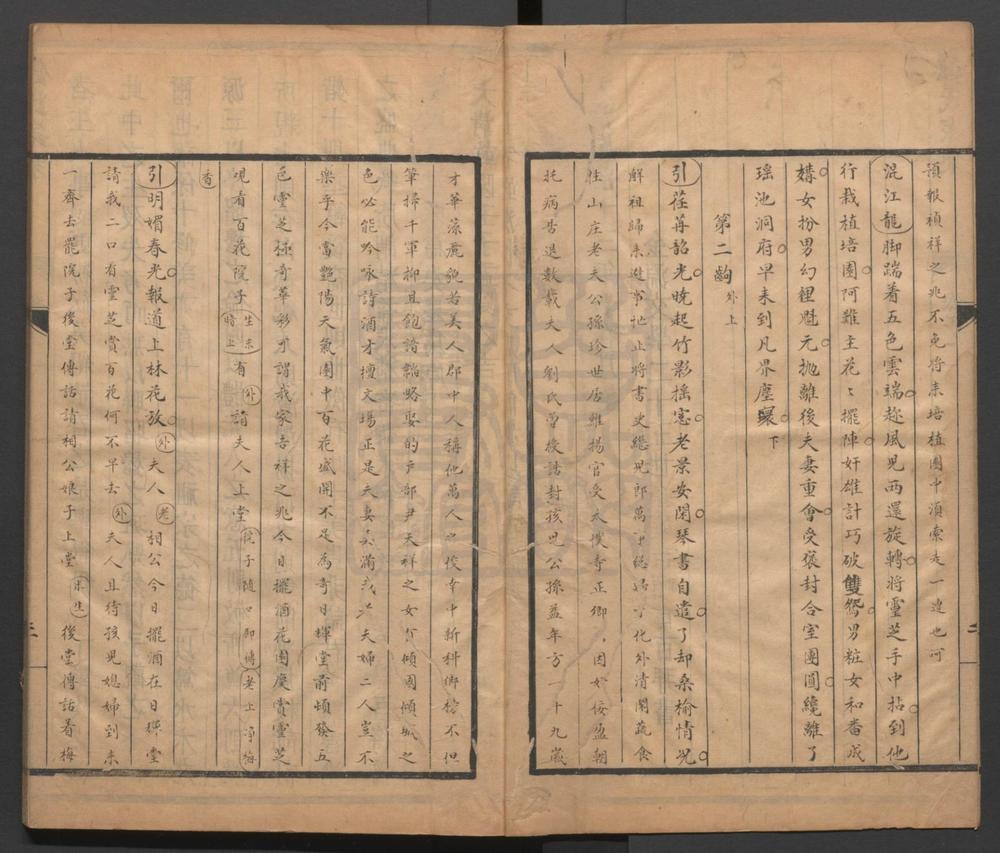 預報禎祥之兆不免將來培植園中須索走一遭也呵
混江龍脚踹着五色雲端趂風兒兩還旋轉將靈芝手中拈到他
行栽植培園阿雖主花〻擺陣奸雄計巧破雙鴛男粧女和番成
媾女扮男幻裡魁元抛離後夫妻重會受褒封合室團圓纔離了
瑶池洞府早来到凡界塵寰下
第二齣外上
引荏苒韶光晚起竹影摇窓老景安閑琴書自遣了却桑榆情况
解祖歸来避事
將書史繼兒郎萬
化外清閑蔬食
住山庄老夫公孫珍世居維揚官受太僕寺正卿因奸佞盈朝
托病告退數載夫人劉氏曾授誥封孩兒公孫益年方一十九歲
才華淙麗貌若美人郡中人稱他萬人之俊幸中新科鄉榜不但
筆掃千軍抑且飽諳韜略娶的户部尹天祥之女有傾國傾城之
色必能吟咏詩酒才擅文場正是夫妻美滿我夫婦二人豈不
樂乎今當艷陽天氣園中百花盛開不足為奇日輝堂前頓發五
色靈芝極奇華彩可謂我家吉祥之兆今日擺酒花園慶賞靈芝
現看百花院子生末暗上有外請夫人上堂院子隨口即傳老上淨梅
香
引明媚春光報道上林花放外夫人老相公今日擺酒在日輝堂
請我二口看靈芝賞百花何不早去外夫人且待孩兒媳婦到来
一齊去罷院子後堂傳話請相公娘子上堂末生後堂傳話着梅
二
三